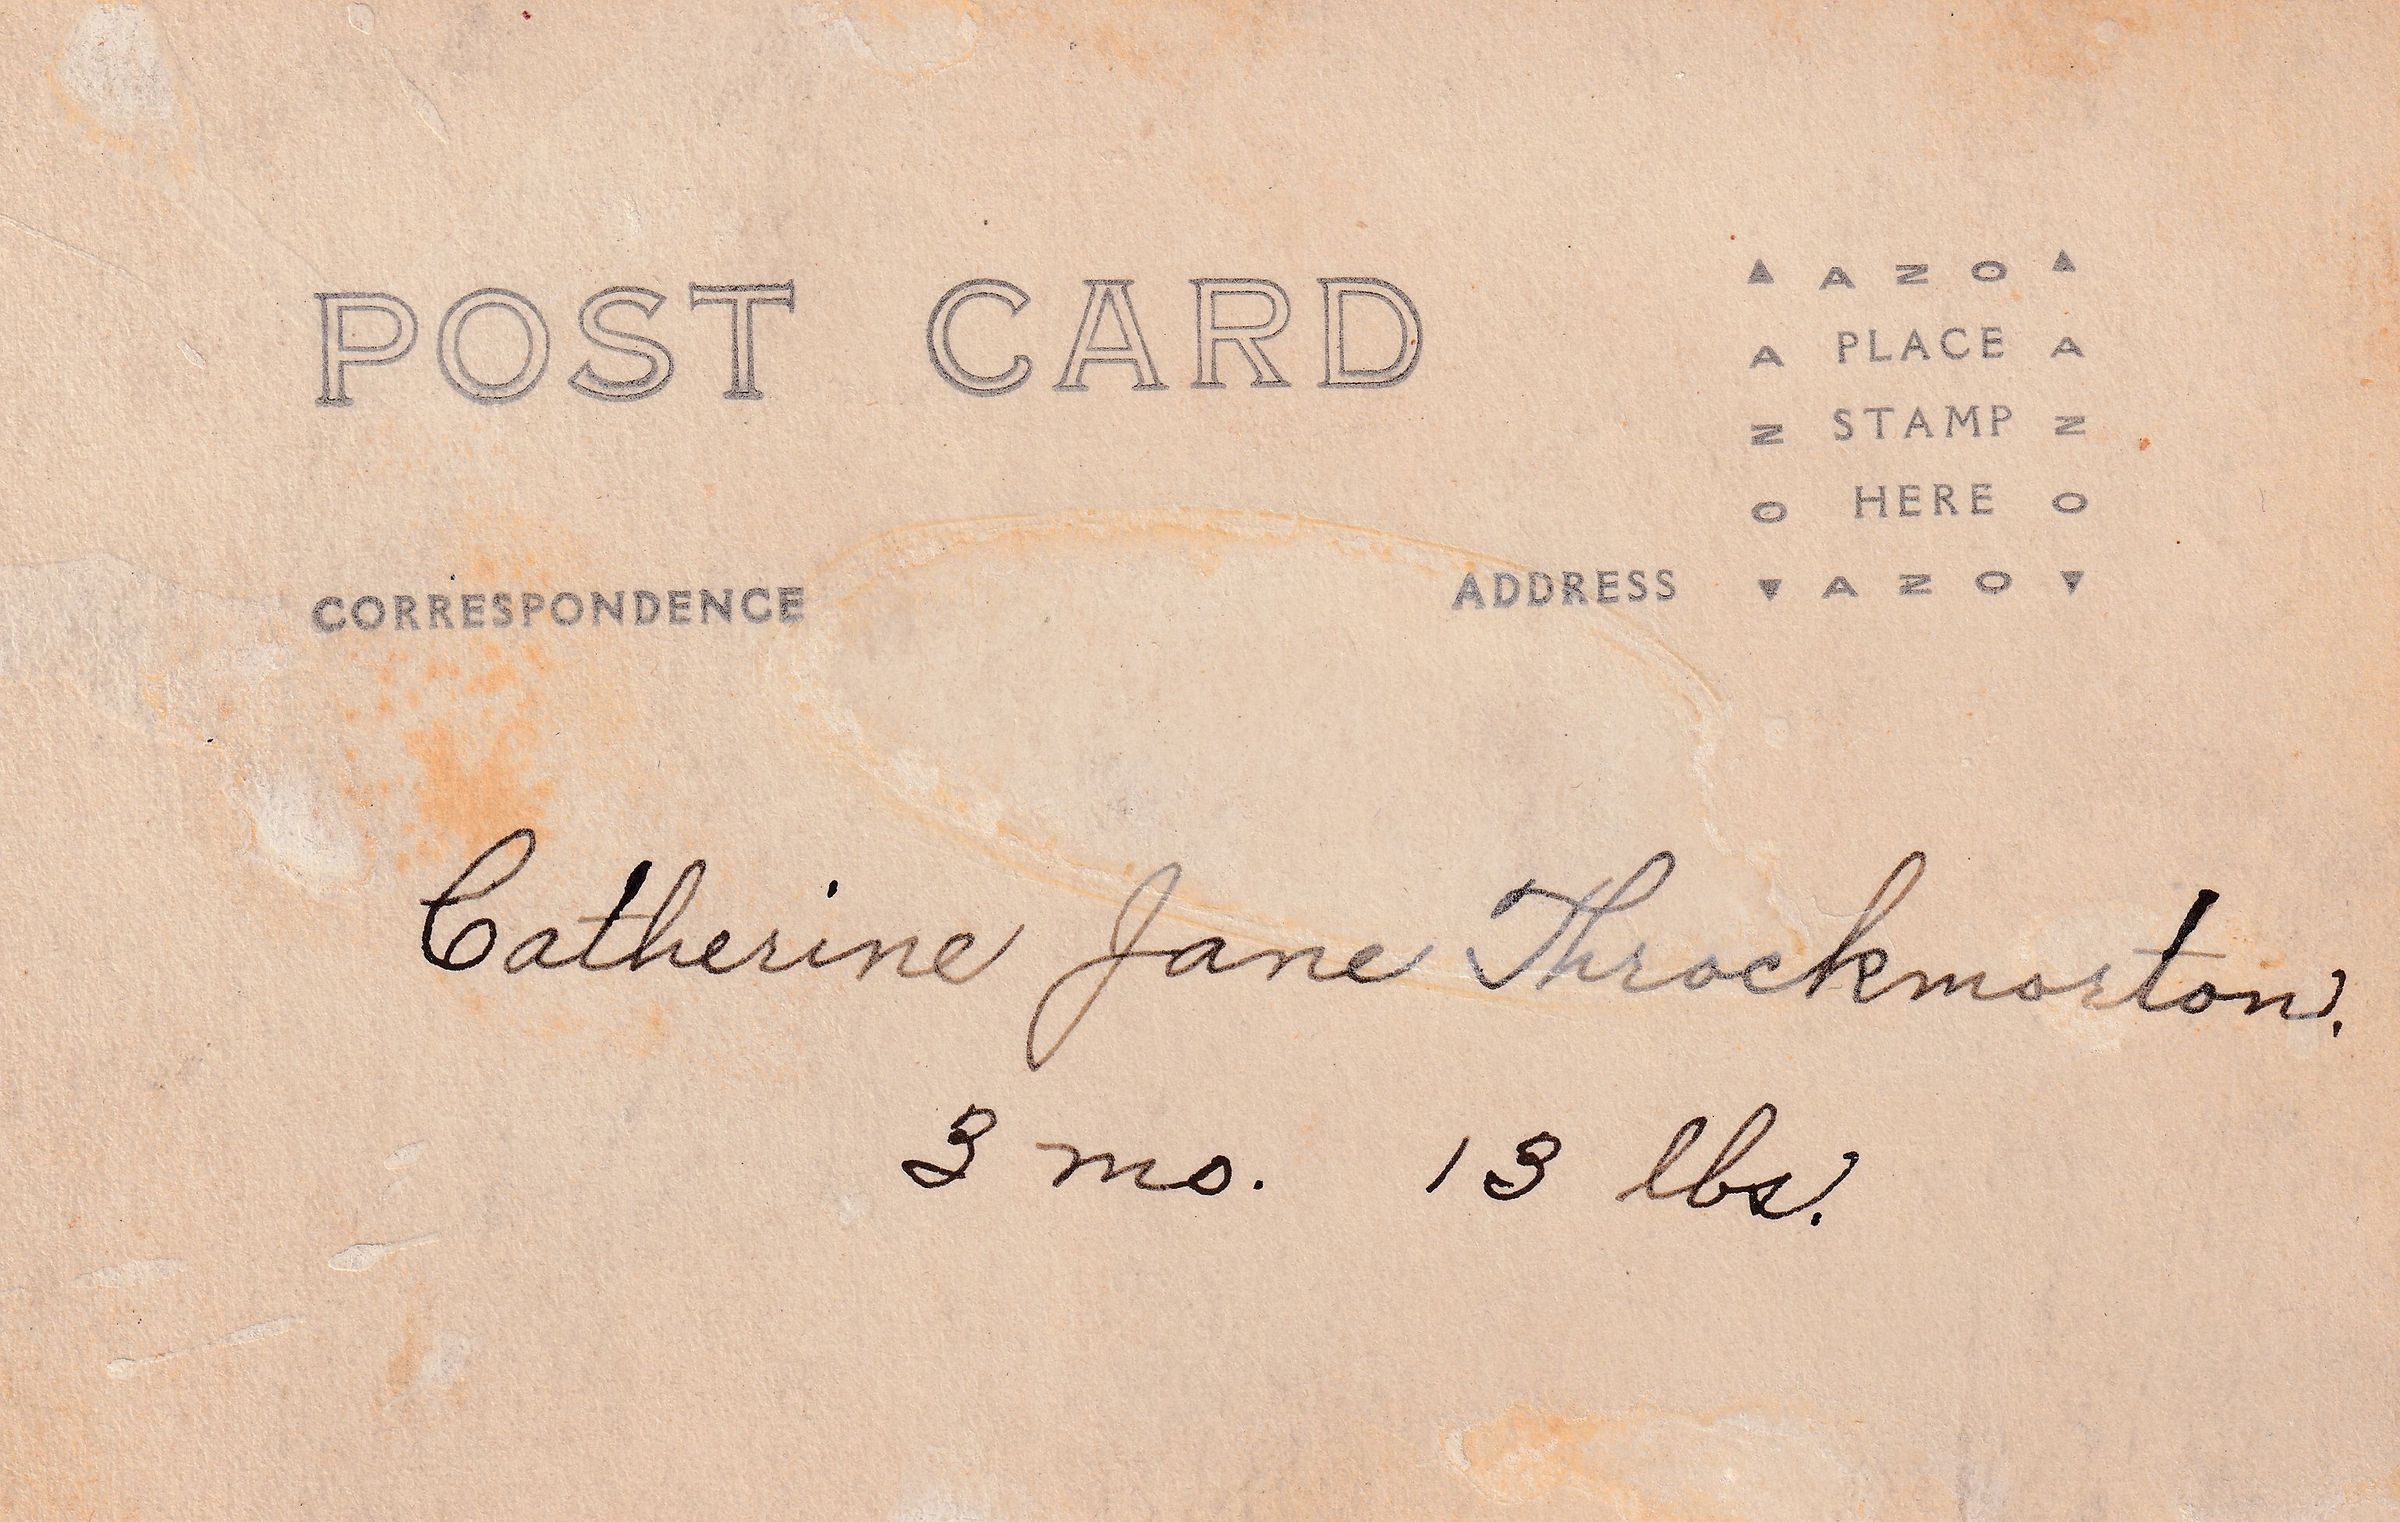 POST CARD
▲ A Z O ▲
A PLACE A
Z STAMP Z
O HERE O
▼ A Z O ▼
CORRESPONDENCE
ADDRESS
Catherine Jane Throckmorton.
3 mo. 13 lbs.